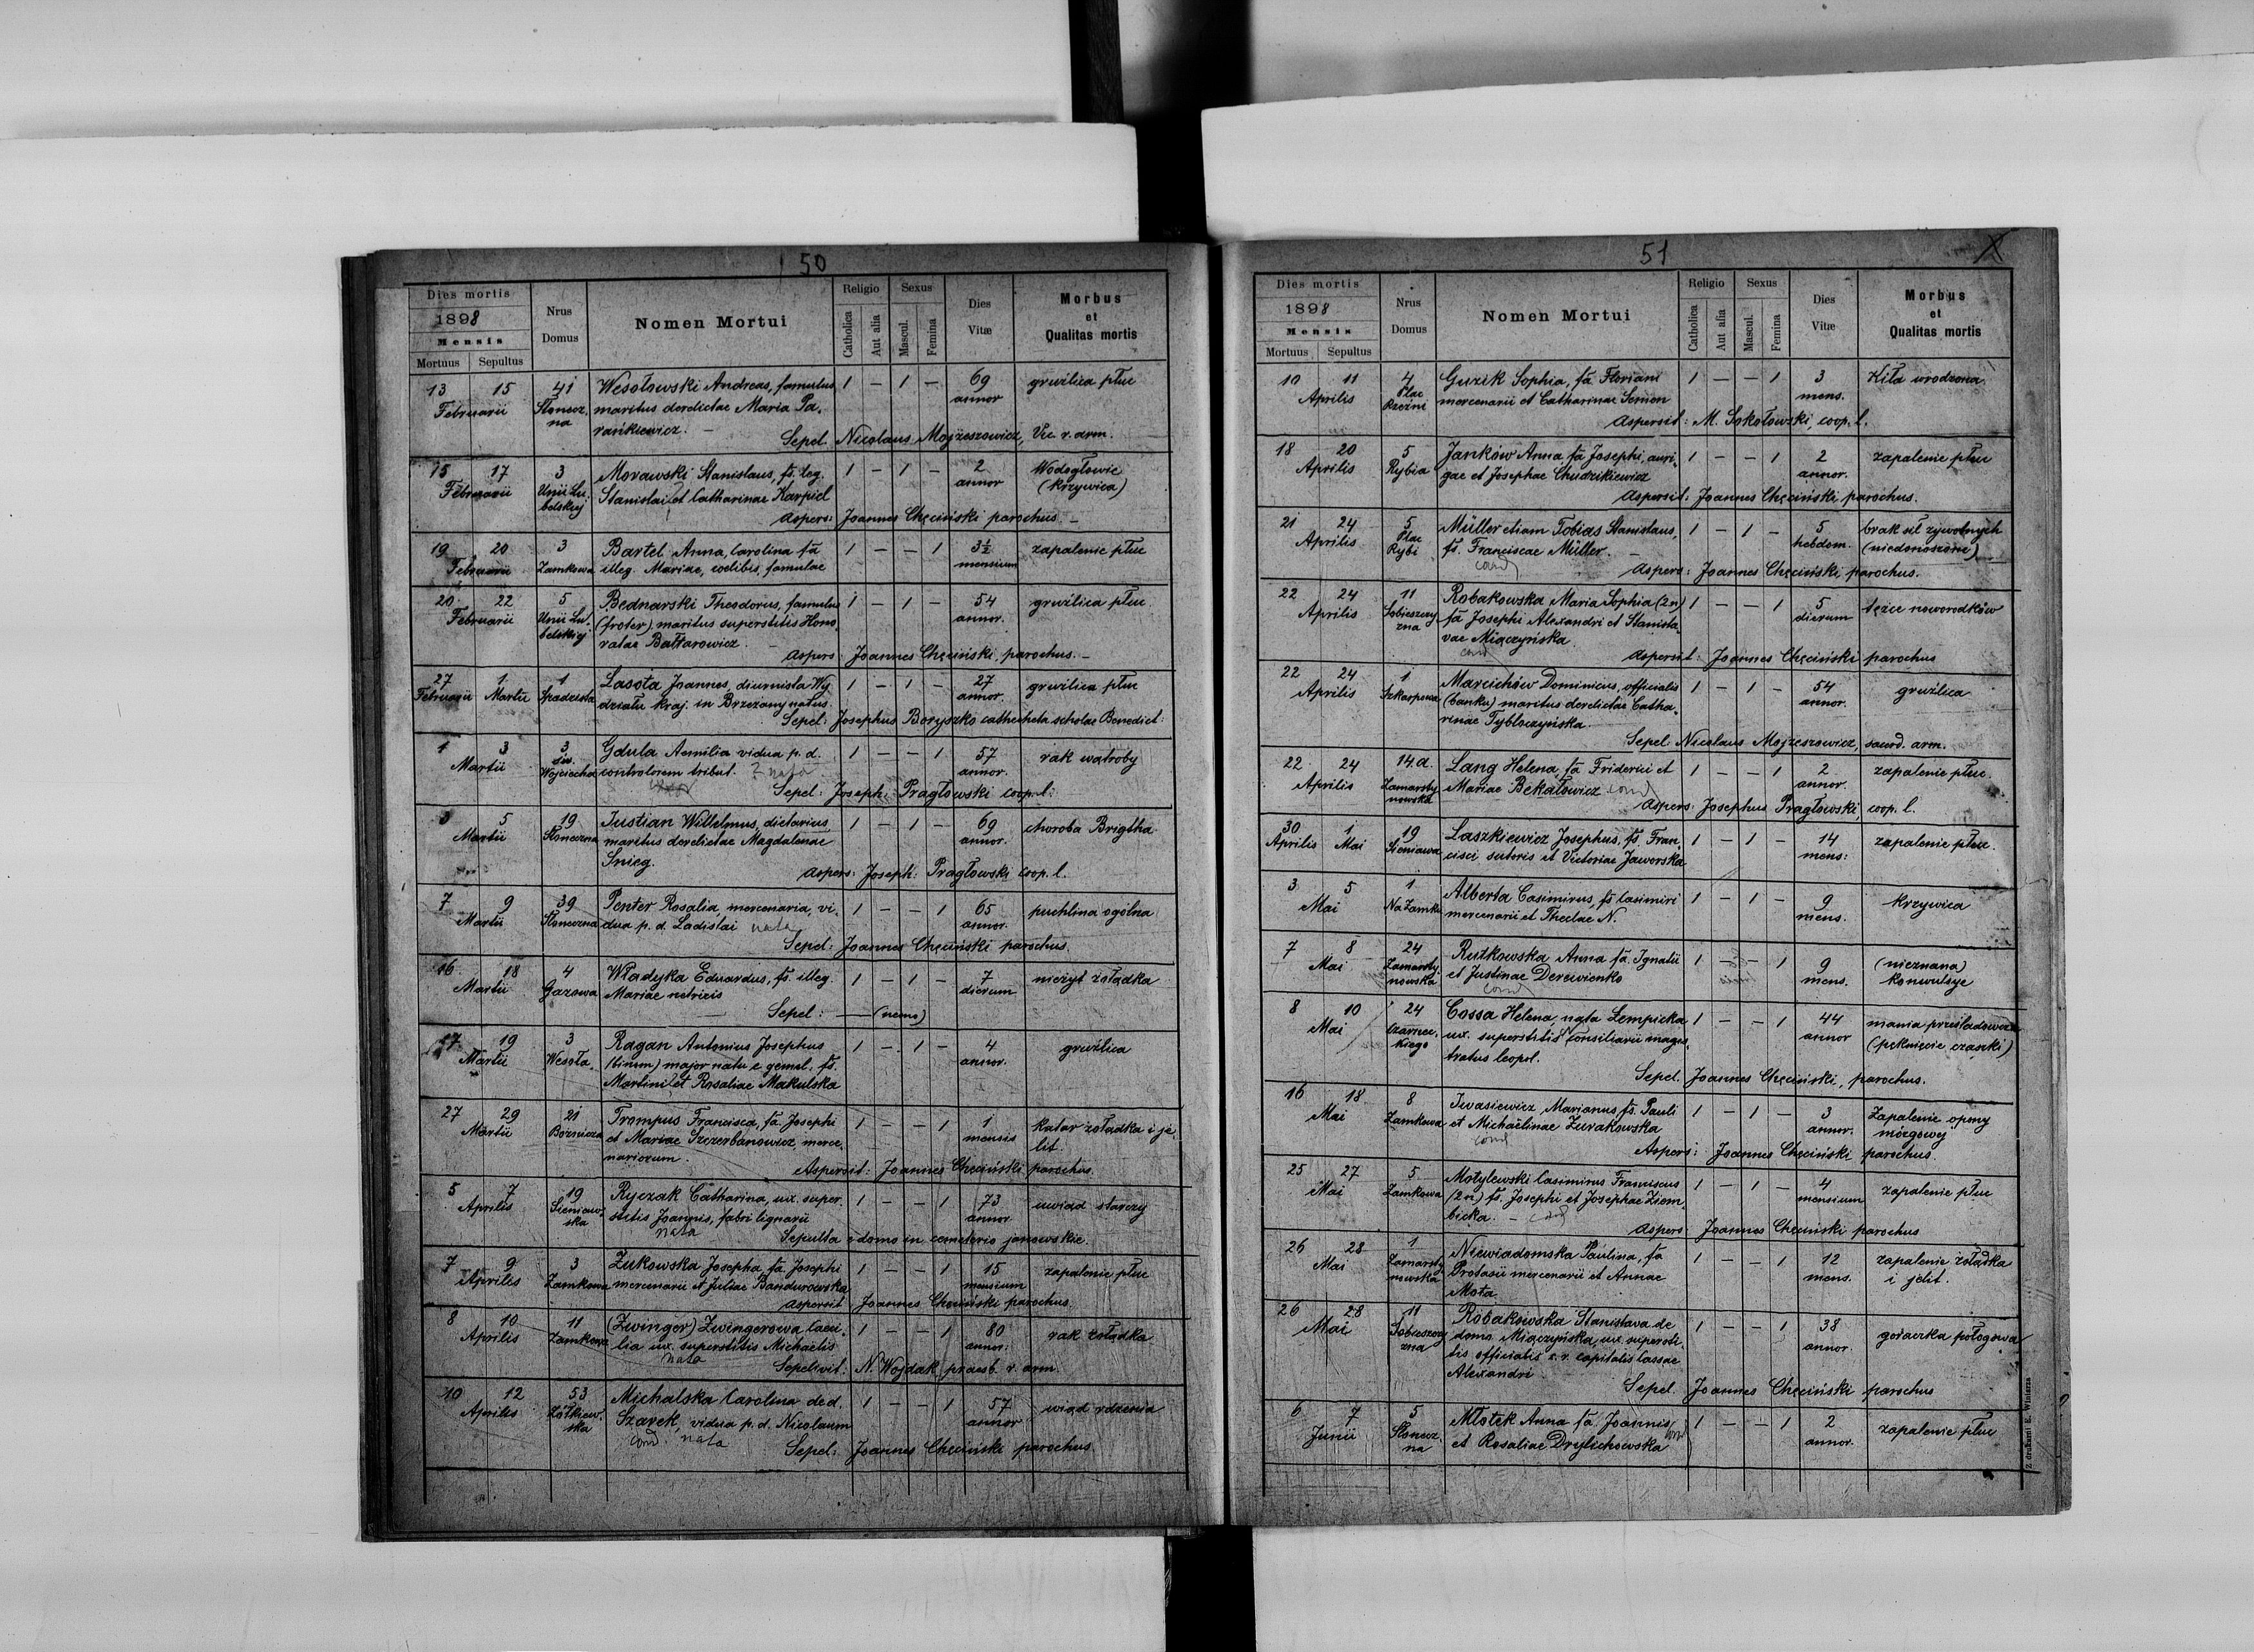 50
Dies mortis
1898
Mensis
Mortuus Sepultus
Nrus
Domus
Nomen Mortui
Religio
Catholica
Aut alia
Sexus
Mascul.
Femina
Dies
Vitæ
Morbus
et
Qualitas mortis
13 15 41 Wesołowski Andreas, famulus 1 – 1 – 69 gruźlica płuc
Februarii Słonecz maritus derelictae Maria Pa- annor
na rańkiewicz. –
Sepel. Nicolaus Mojzeszowicz, Vic. r. arm.
15 17 3 Morawski Stanislaus, fs. leg. 1 – 1 – 2 Wodogłowie
Februarii Unii Lu- Stanislai et Catharinae Karpiel annor (krzywica)
belskiej
Aspers: Joannes Chęciński parochus. –
19 20 3 Bartel Anna, Carolina fa 1 – – 1 3½ zapalenie płuc
Februarii Zamkowa illeg. Mariae, coelibis, famulae mensium
20 22 5 Bednarski Theodorus, famulus 1 – 1 – 54 gruźlica płuc.
Februarii Unii Lu- (froter) maritus superstitis Hono- annor.
belskiej ratae Bałtarowicz. –
Aspers: Joannes Chęciński, parochus. –
27 1 1 Lasota Joannes, diurnista Wy 1 – 1 – 27 gruźlica płuc
Februarii Martii działu kraj. in Brzezany natus. annor.
Sepel: Josephus Boryszko catecheta scholae Benedict:
1 3 3 Gdula Aemilia vidua p. d. 1 – – 1 57 rak wątroby
Martii św. Wojciecha controlorem tribut. annor.
Sepel: Joseph. Pragłowski coop. l:
3 5 19 Justian Wilhelmus, dietarius 1 – 1 – 69 choroba Brigtha
Martii Słoneczna maritus derelictae Magdalenae annor.
Snieg.
Aspers: Joseph: Pragłowski coop. l.
7 9 39 Penter Rosalia mercenaria, vi- 1 – – 1 65 puchlina ogólna
Martii Słoneczna dua p. d. Ladislai nata annor.
Sepel: Joannes Chęciński parochus.
16 18 4 Władyka Eduardus, fs. illeg. 1 – 1 – 7 nieżyt żołądka
Martii Gazowa Mariae nutricis dierum
Sepel: — (nemo)
17 19 3 Ragan Antonius Josephus 1 – 1 – 4 gruźlica
Martii Wesoła. (binom) major natu e gemel. fs. annor.
Martini et Rosaliae Makulska
27 29 21 Trompus Francisca, fa. Josephi 1 – – 1 1 katar żołądka i je-
Martii Bóżnicza et Mariae Szczerbanowicz, merce- mensis lit.
nariorum.
Aspersit: Joannes Chęciński parochus.
5 7 19 Ryczak Catharina, ux. super- 1 – – 1 73 uwiąd starczy
Aprilis Sieniaw- stitis Joannis, fabri lignarii annor
ska nata
Sepulta e domo in cemeterio janowskie.
7 9 3 Żukowska Josepha, fa Josephi 1 – – 1 15 zapalenie płuc
Aprilis Zamkowa mercenarii et Juliae Bandurowska mensium
Aspersit Joannes Chęciński parochus
8 10 11 (Zwinger) Zwingerowa Caeci- 1 – – 1 80 rak żołądka
Aprilis Zamkowa lia ux. superstitis Michaelis annor:
nata
Sepelivit: N. Wojdak, praesb. r. arm.
10 12 53 Michalska Carolina de d. 1 – – 1 57 wiąd rdzenia
Aprilis Żółkiew- Szarek, vidua p. d. Nicolaum annor
ska cond. nata
Sepel: Joannes Chęciński parochus.
51
Dies mortis
1898
Mensis
Mortuus Sepultus
Nrus
Domus
Nomen Mortui
Religio
Catholica
Aut alia
Sexus
Mascul.
Femina
Dies
Vitæ
Morbus
et
Qualitas mortis
10 11 4 Guzik Sophia, fa Floriani 1 – – 1 3 Kiła wrodzona
Aprilis Plac Rzeźni mercenarii et Catharinae Semen mens.
Aspersit: M. Sokołowski, coop. l.
18 20 5 Janków Anna fa Josephi, auri- 1 – – 1 2 zapalenie płuc
Aprilis Rybia gae et Josephae Chudzikiewicz annor.
Aspersit: Joannes Chęciński parochus.
21 24 5 Müller etiam Tobias Stanislaus, 1 – 1 – 5 brak sił żywotnych
Aprilis Plac Rybi fs. Franciscae Müller. – hebdom. (niedonoszenie)
cond
Aspers: Joannes Chęciński, parochus.
22 24 11 Robakowska Maria Sophia (2 n) 1 – – 1 5 tężec noworodków
Aprilis Sobieszczy fa Josephi Alexandri et Stanisla- dierum
zna vae Miączyńska.
cond
Aspersit: Joannes Chęciński parochus
22 24 1 Marcichów Dominicus, officialis 1 – 1 – 54 gruźlica
Aprilis Szkarpowa (banku) maritus derelictae Catha- annor.
rinae Tybloczyńska
Sepel: Nicolaus Mojzeszowicz, sacerd. arm.
22 24 14.a. Lang Helena, fa Friderici et 1 – – 1 2 zapalenie płuc.
Aprilis Zamarsty Mariae Bekałowicz cond annor.
nowska
Aspers: Josephus Pragłowski, coop. l.
30 1 19 Laszkiewicz Josephus, fs. Fran- 1 – 1 – 14 zapalenie płuc.
Aprilis Mai Sieniawa cisci sutoris et Victoriae Jaworska mens:
3 5 1 Alberta Casimirus, fs Casimiri 1 – 1 – 9 krzywica
Mai Na Zamku mercenarii et Theclae N. mens.
7 8 24 Rutkowska Anna fa. Ignatii 1 – – 1 9 (nieznana)
Mai Zamarsty et Justinae Derewienko mens. konwulsye
nowska cond
8 10 24 Cossa Helena, nata Lempicka 1 – – 1 44 mania prześladowcza
Mai Czarnec- ux. superstitis Consiliarii magis- annor (pęknięcie czaszki)
kiego tratus leopol.
Sepel. Joannes Chęciński, parochus.
16 18 8 Iwasiewicz Marianus, fs. Pauli 1 – 1 – 3 Zapalenie opony
Mai Zamkowa et Michaëlinae Żurakowska annor. mózgowej
cond
Aspers: Joannes Chęciński parochus.
25 27 5 Motylewski Casimirus Franciscus 1 – 1 – 4 zapalenie płuc
Mai Zamkowa (2 n) fs. Josephi et Josephae Ziem- mensium
bicka. – cond
Aspers: Joannes Chęciński parochus
26 28 1 Niewiadomska Paulina, fa 1 – – 1 12 zapalenie żołądka
Mai Zamarsty Protasii mercenarii et Annae mens. i jelit.
nowska Mota
26 28 11 Robakowska Stanislava de 1 – – 1 38 gorączka połogowa
Mai Sobieszczy domo Miączyńska, ux. supersti- annor.
zna tis officialis c. r. capitalis Cassae
Alexandri.
Sepel. Joannes Chęciński parochus
6 7 5 Młotek Anna fa Joannis 1 – – 1 2 zapalenie płuc
Junii Słonecz et Rosaliae Drylichowska cond annor.
na
Z drukarni E. Winiarza